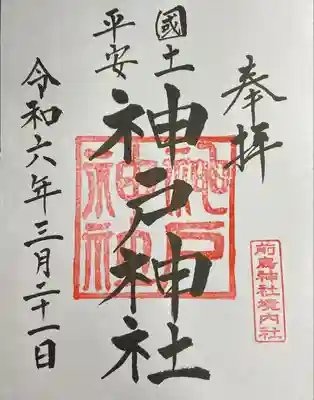 奉拝
國土
平安
神戸神社
神戸神社
前鳥神社境内社
令和六年三月二十一日